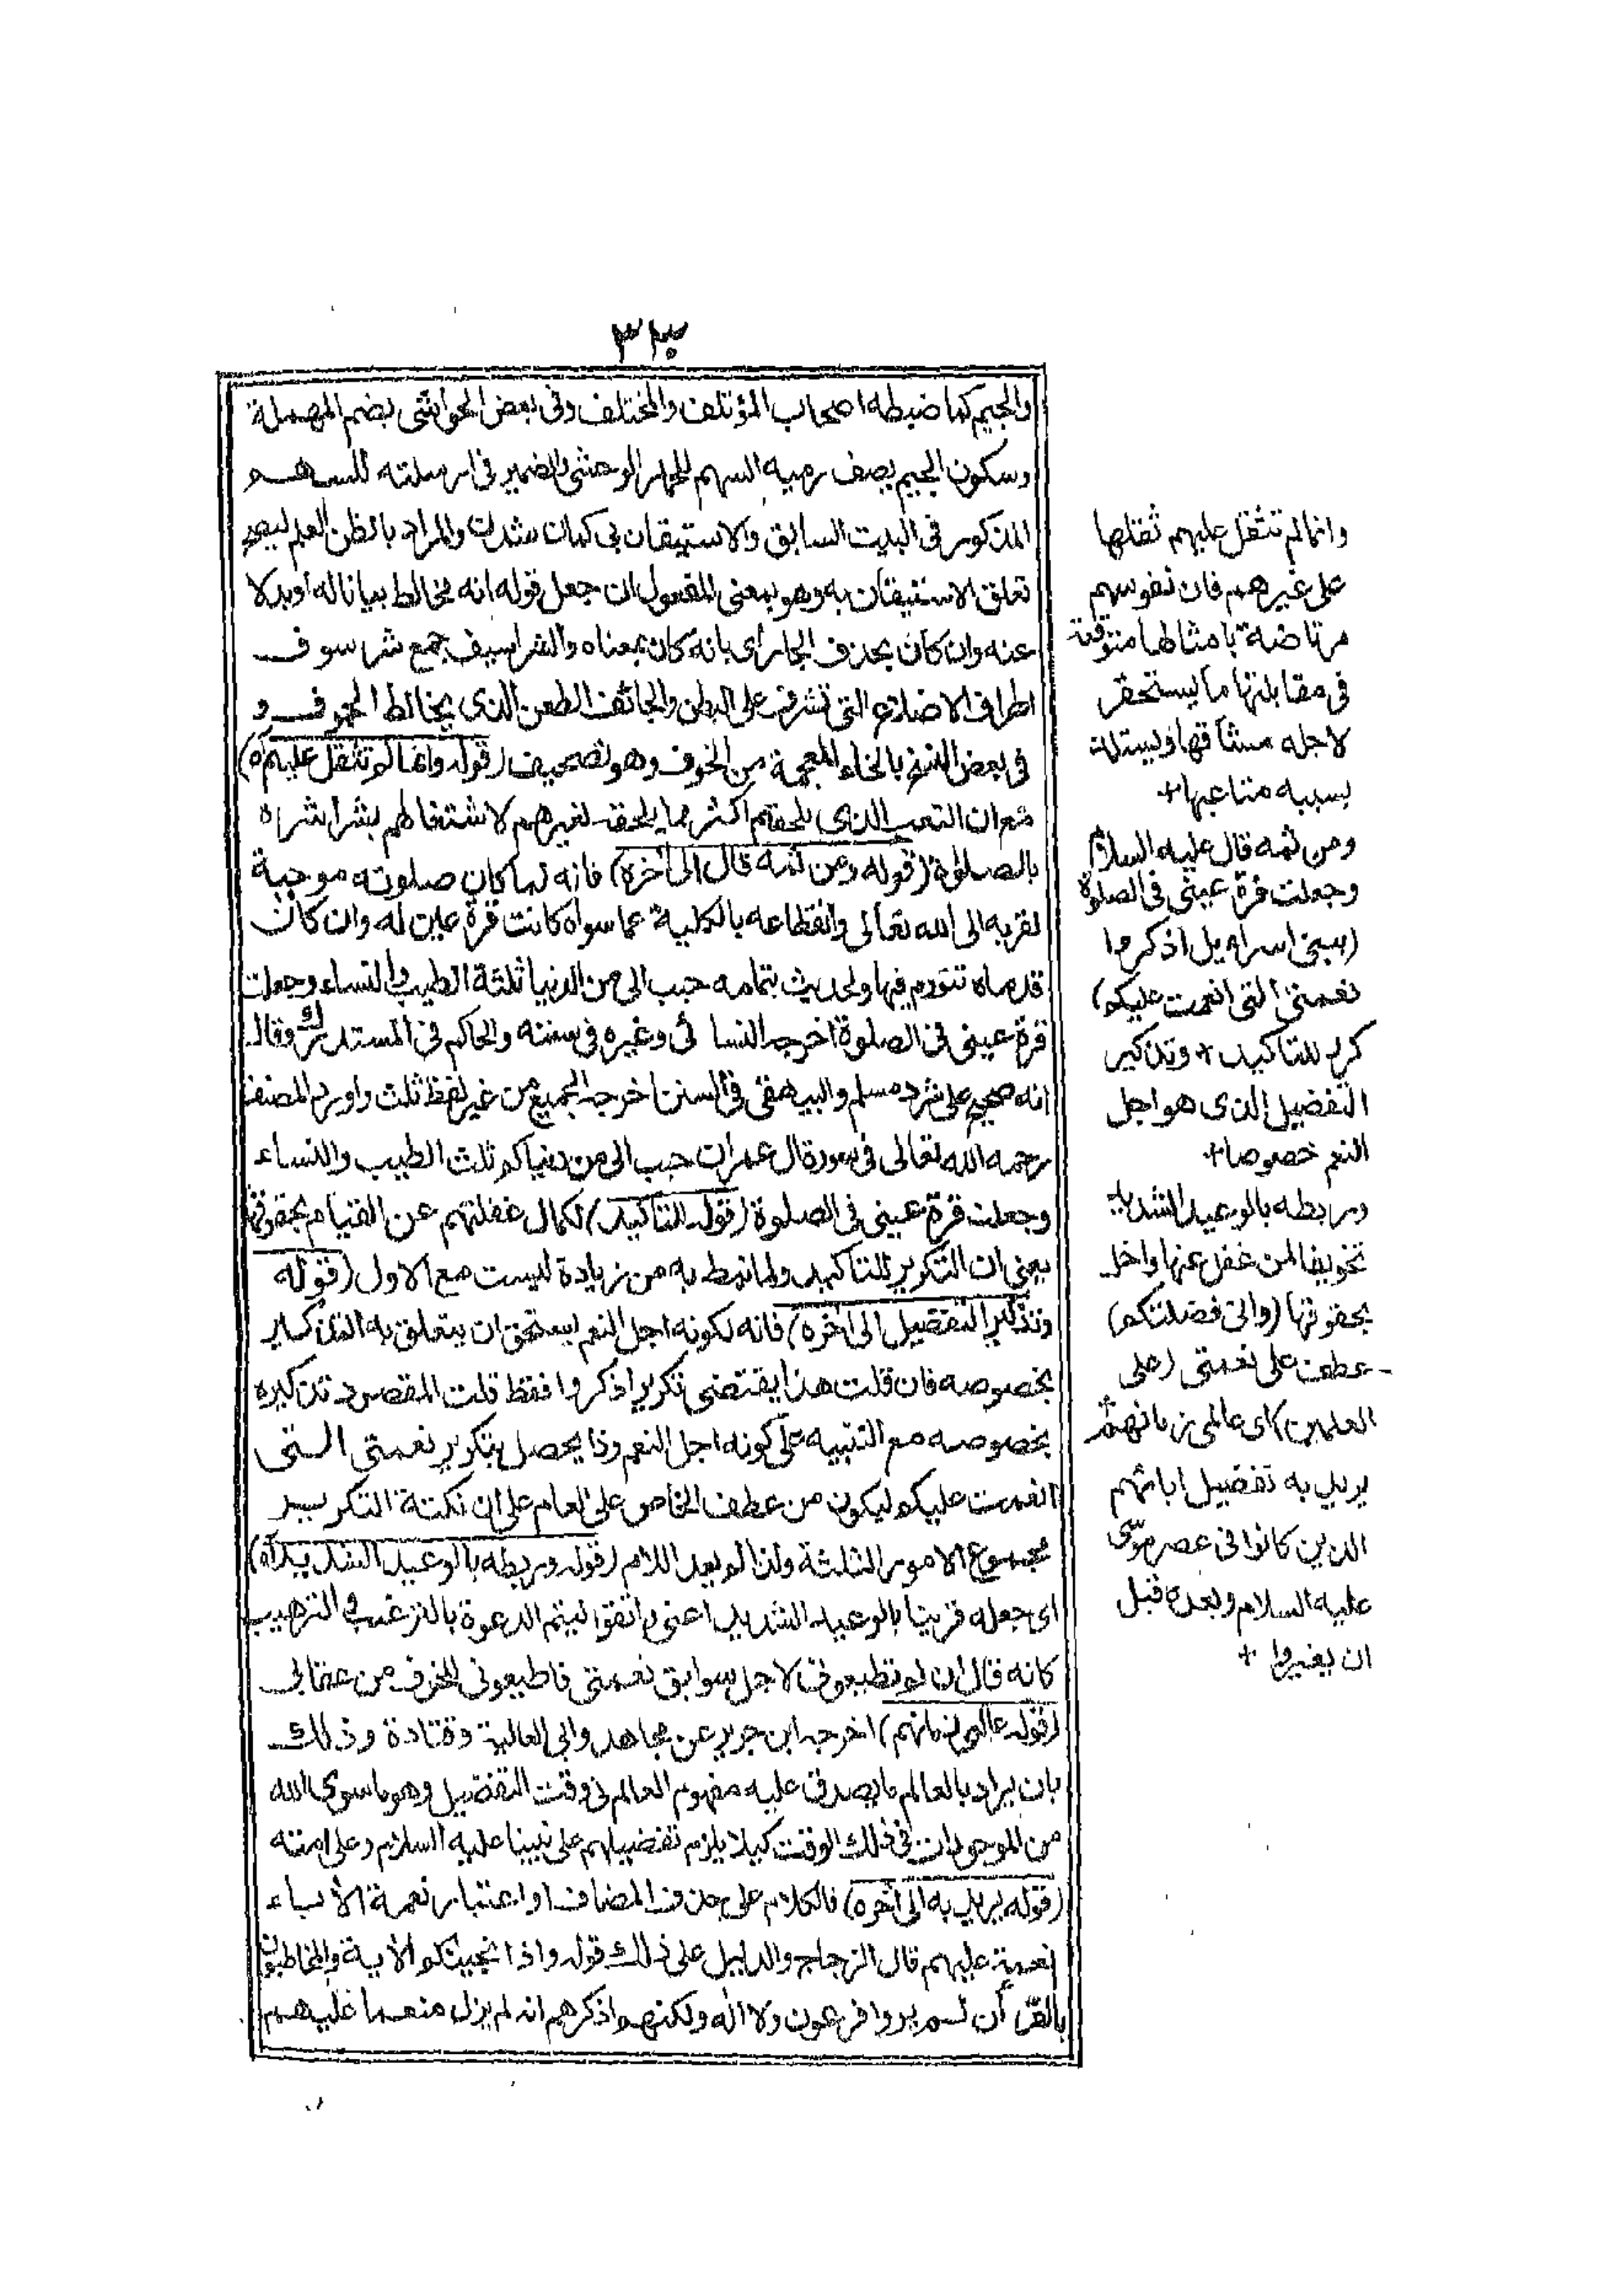 ٣٢٣
والجيم كما ضبطه اصحاب المؤتلف والمختلف وفى بعض الحواشى بضم المهملة
وسكون الجيم يصف رميه السهم للحمار الوحشى والضمير فى ارسلته للسهم
المذكور فى البيت السابق والاستيقان بى كمان شدن والمراد بالظن العلم ليصح
تعلق الاستيقان به وهو بمعنى المفعول ان جعل قوله انه مخالط بيانا له او بدلا
عنه وان كان بحذف الجار اى بانه كان بمعناه والشراسيف جمع شرسوف
اطراف الاضلاع التى تشرف على البطن والجائف الطعن الذى يخالط الجوف و
فى بعض النسخ بالخاء المعجمة من الخوف وهو تصحيف (قوله وانما لم تثقل عليهم اه)
مع ان التعب الذى يلحقهم اكثر مما يلحق لغيرهم لاشتغالهم بشراشراه
بالصلوة (قوله ومن ثمه قال الى اخره) فانه لما كان صلوته موجبة
لقربه الى الله تعالى وانقطاعه بالكلية عما سواه كانت قرة عين له وان كان
قدماه تتورم فيها والحديث بتمامه حبب الى من الدنيا ثلثة الطيب والنساء وجعلت
قرة عينى فى الصلوة اخرجه النسائى وغيره فى سننه والحاكم فى المستدرك وقال
انه صحيح على شرط مسلم والبيهقى فى السنن اخرجه الجميع من غير لفظ ثلث واورد المصنف
رحمه الله تعالى فى سورة ال عمران حبب الى من دنياكم ثلث الطيب والنساء
وجعلت قرة عينى فى الصلوة (قوله للتاكيد) لكمال غفلتهم عن القيام بحقوقها
يعنى ان التكرير للتاكيد ولما نيط به من زيادة ليست مع الاول (قوله
وتذكير التفضيل الى اخره) فانه لكونه اجل النعم يستحق ان يتعلق به التذكير
بخصوصه فان قلت هذا يقتضى تكرير اذكروا فقط قلت المقصود تذكيره
بخصوصه مع التنبيه على كونه اجل النعم وذا يحصل بتكرير نعمتى التى
انعمت عليكم ليكون من عطف الخاص على العام على ان نكتة التكرير
مجموع الامور الثلثة ولذا لم يعد اللام (قوله وربطه بالوعيد الشديد اه)
اى جعله قرينا بالوعيد الشديد اعنى واتقوا ليتم الدعوة بالترغيب والترهيب
كانه قال ان لم تطيعونى لاجل سوابق نعمتى فاطيعونى للخوف من عقابى
(قوله عالمى زمانهم) اخرجه ابن جرير عن مجاهد وابى العالية وقتادة وذلك
بان يراد بالعالم ما يصدق عليه مفهوم العالم فى وقت التفضيل وهو ما سوى الله
من الموجودات فى ذلك الوقت كيلا يلزم تفضيلهم على نبينا عليه السلام وعلى امته
(قوله يريد به الى اخره) فالكلام على حذف المضاف او اعتبار نعمة الأباء
نعمة عليهم قال الزجاج والدليل على ذلك قوله واذ انجينكم الأية والمخاطبون
بالقرأن لم يروا فرعون ولا اله ولكنه اذكرهم انه لم يزل منعما عليهم
وانما لم تثقل عليهم ثقلها
على غيرهم فان نفوسهم
مرتاضة بامثالها متوقعة
فى مقابلتها ما يستحقر
لاجله مشاقها ويستلذ
بسببه متاعبها +
ومن ثمه قال عليه السلام
وجعلت قرة عينى فى الصلوة
(يبنى اسراءيل اذكروا
نعمتى التى انعمت عليكم)
كرر للتاكيد + وتذكير
التفضيل الذى هو اجل
النعم خصوصا +
وربطه بالوعيد الشديد
تخويفا لمن غفل عنها واخل
بحقوقها (وانى فضلتكم)
عطف على نعمتى (على
العلمين) اى عالمى زمانهم
يريد به تفضيل ابائهم
الذين كانوا فى عصر موسى
عليه السلام وبعده قبل
ان يغيروا +